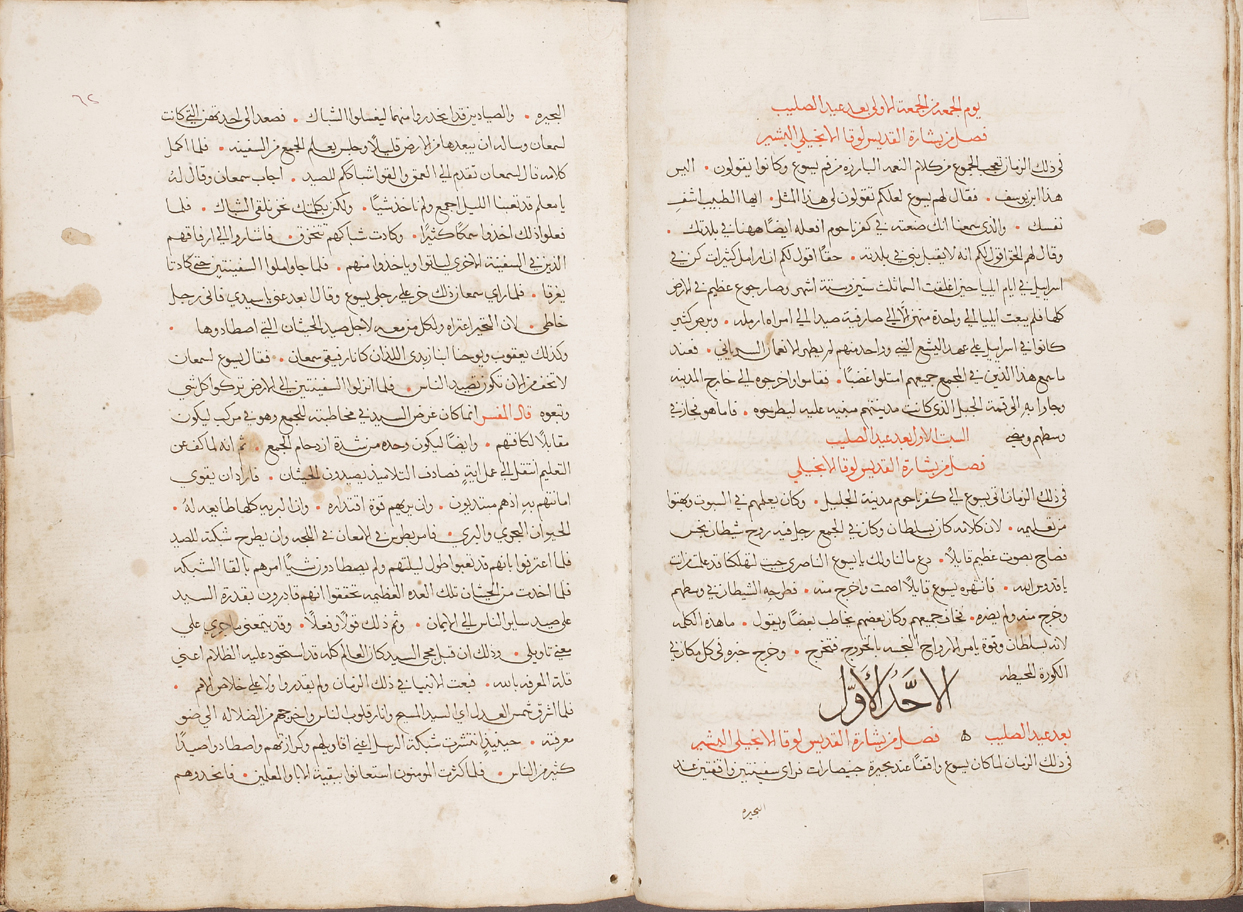 يوم الجمعه من الجمعة الاولى بعد عيد الصليب
فصل من بشارة القديس لوقا الانجيلي البشير
في ذلك الزمان تعجب الجموع من كلام النعمه البارزه من فم يسوع وكانوا يقولون . اليس
هذا ابن يوسف . فقال لهم يسوع لعلكم تقولون لي هذا المثل . ايها الطبيب اشفِ
نفسك . والذي سمعنا انك صنعته في كفرناحوم افعله ايضًا ههنا في بلدتك .
وقال لهم الحق اقول لكم انه لا يقبل نبي في بلدته . حقًا اقول لكم ان ارامل كثيرات كن في
اسراييل في ايام ايليا حين اغلقت السما ثلث سنين وستة اشهر وصار جوع عظيم في الارض
كلها فلم يبعث ايليا الى واحدة منهن الّا الى صارفية صيدا الى امراه ارمله . وبرص كثير
كانوا في اسراييل على عهد اليشع النبي وواحد منهم لم يطهر الا نعمان السرياني . فعند
ما سمع هذا الذين في المجمع جميعهم امتلوا غضبًا . فقاموا واخرجوه الى خارج المدينه
وجاوا به الى قمة الجبل الذي كانت مدينتهم مبنيه عليه ليطرحوه . فاما هو فجاز في
وسطهم ومضى السبت الاول بعد عيد الصليب
فصل من بشارة القديس لوقا الانجيلي
في ذلك الزمان اتى يسوع الى كفرناحوم مدينة الجليل . وكان يعلمهم في السبوت وبهتوا
من تعليمه . لان كلامه كان بسلطان وكان في المجمع رجل فيه روح شيطان نجس
فصاح بصوت عظيم قايلًا . دع مالنا ولك يا يسوع الناصري جيت لتهلكنا قد علمت من انت
يا قدوس الله . فانتهره يسوع قايلًا اصمت واخرج منه . فطرحه الشيطان في وسطهم
وخرج منه ولم يضره . فخاف جميعهم وكان بعضهم يخاطب بعضًا ويقول . ما هذه الكلمه
لانه بسلطان وقوة يامر الارواح النجسه بالخروج فتخرج . وخرج خبره في كل مكان في
الكورة المحيطه
الاحَد الاوّل
بعد عيد الصليب ه فصل من بشارة القديس لوقا الانجيلي البشير
في ذلك الزمان لما كان يسوع واقفًا عند بحيرة جنيصارات فراى سفينتين واقفتين عند
البحيره
٦٢
البحيره . والصيادين قد انحدروا منهما ليغسلوا الشباك . فصعد الى احدتهن التي كانت
لسمعان وساله ان يبعدها من الارض قليلًا وجلس يعلم الجميع من السفينه . فلما اكمل
كلامه قال لسمعان تقدم الى العمق والقوا شباككم للصيد . اجاب سمعان وقال له
يا معلم قد تعبنا الليل اجمع ولم ناخذ شيًا . ولكن بكلمتك نحن نلقي الشباك . فلما
فعلوا ذلك اخذوا سمكًا كثيرًا . وكادت شباكهم تتخرق . فاشاروا الى ارفاقهم
الذين في السفينة الاخرى لياتوا وياخذوا منهم . فلما جاوا ملوا السفينتين حتى كادتا
يغرقا . فلما راى سمعان ذلك خر على رجلي يسوع وقال ابعد عني يا سيدي فاني رجل
خاطي . لان التحير اعتراه ولكل من معه لاجل صيد الحيتان التي اصطادوها .
وكذلك يعقوب ويوحنا ابنا زبدي اللذان كانا رفيقي سمعان . فقال يسوع لسمعان
لا تخف من الان تكون تصيد الناس . فلما انزلوا السفينتين الى الارض تركوا كل شي
وتبعوه قال المفسر انما كان غرض السيد في مخاطبته للجمع وهو في مركب ليكون
مقابلًا لكافتهم . وايضًا ليكون وحده من شدة ازدحام الجمع . ثم انه لما كف عن
التعليم انتقل الى عمل اية فصادف التلاميذ يصيدون الحيتان . فاراد ان يقوي
امانتهم به اذ هم مبتديون . وان يريهم قوة اقتداره . وان البريه كلها طايعه له .
الحيوان البحري والبري . فامر بطرس في الامعان في اللجه وان يطرح شبكته للصيد
فلما اعترفوا بانهم قد تعبوا طول ليلتهم ولم يصطادوا شيًا امرهم بالقا الشبكه
فلما اخذت من الحيتان تلك العده العظيمه تحققوا انهم قادرون بقدرة السيد
على صيد ساير الناس الى الايمان . وتم ذلك قولًا وفعلًا . وقد يمعنى ما جرى على
معنى تاويلي . وذلك ان قبل مجي السيد كان العالم كله قد استحوذ عليه الظلام اعني
قلة المعرفه بالله . فبعث الانبيا في ذلك الزمان ولم يقدروا ولا على خلاص الامم .
فلما اشرق شمس العدل اي السيد المسيح وانار قلوب الناس واخرجهم من الضلاله الى ضو
معرفته . حينيذٍ انتشرت شبكة الرسل اعني اقاويلهم وكرازتهم واصطادوا صيدًا
كثير من الناس . فلما كثرت المومنون استعانوا ببقية الابا والمعلمين . فاتخذوهم